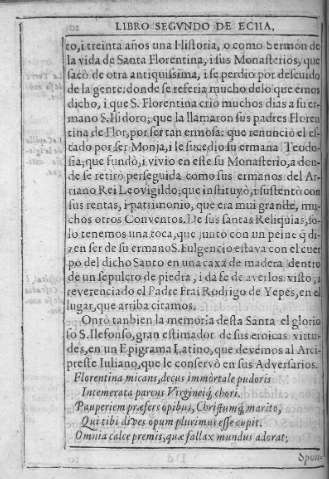 LIBRO SEGVNDO DE ECIIA,
to, i treinta años una Historia, o como Sermon de
la vida de Santa Florentina, i sus Monasterios, que
sacò de otra antiquissima, i se perdio por descuido
de la gente: donde se referia mucho de lo que emos
dicho, i que S. Florentina crio muchos dias a su er-
mano S. Isidoro; que la llamaron sus padres Floren
tina de Flor, por ser tan ermosa: que renunciò el es-
tado por ser Monja, i le sucedio su ermana Teodo-
sia; que fundò, i vivio en este su Monasterio, a don-
de se retirò perseguida como sus ermanos del Ar-
riano Rei Leovigildo; que instituyò, i sustentò con
sus rentas, i patrimonio, que era mui grande, mu-
chos otros Conventos. De sus santas Reliquias, so-
lo tenemos una toca, que junto con un peine q̃ di-
zen ser de su ermano S. Fulgencio estava con el cuer
po del dicho Santo en una caxa de madera dentro
de un sepulcro de piedra, i da fe de averlos visto, i
reverenciado el Padre Frai Rodrigo de Yepes, en el
lugar, que arriba citamos.
Onrò tanbien la memoria desta Santa el glorio
so S. Ilefonso, gran estimador de sus eroicas virtu-
des, en un Epigrama Latino, que devemos al Arci-
preste Iuliano, que le conservò en sus Adversarios.
Florentina micans, decus immortale pudoris
Intemerata parens Virgineiq́; chori.
Pauperiem præfers opibus, Christumq́; marito,
Qui tibi dives opum plurimus esse cupit.
Omnia calce premis, quæ fallax mundus adorat;
Spon-